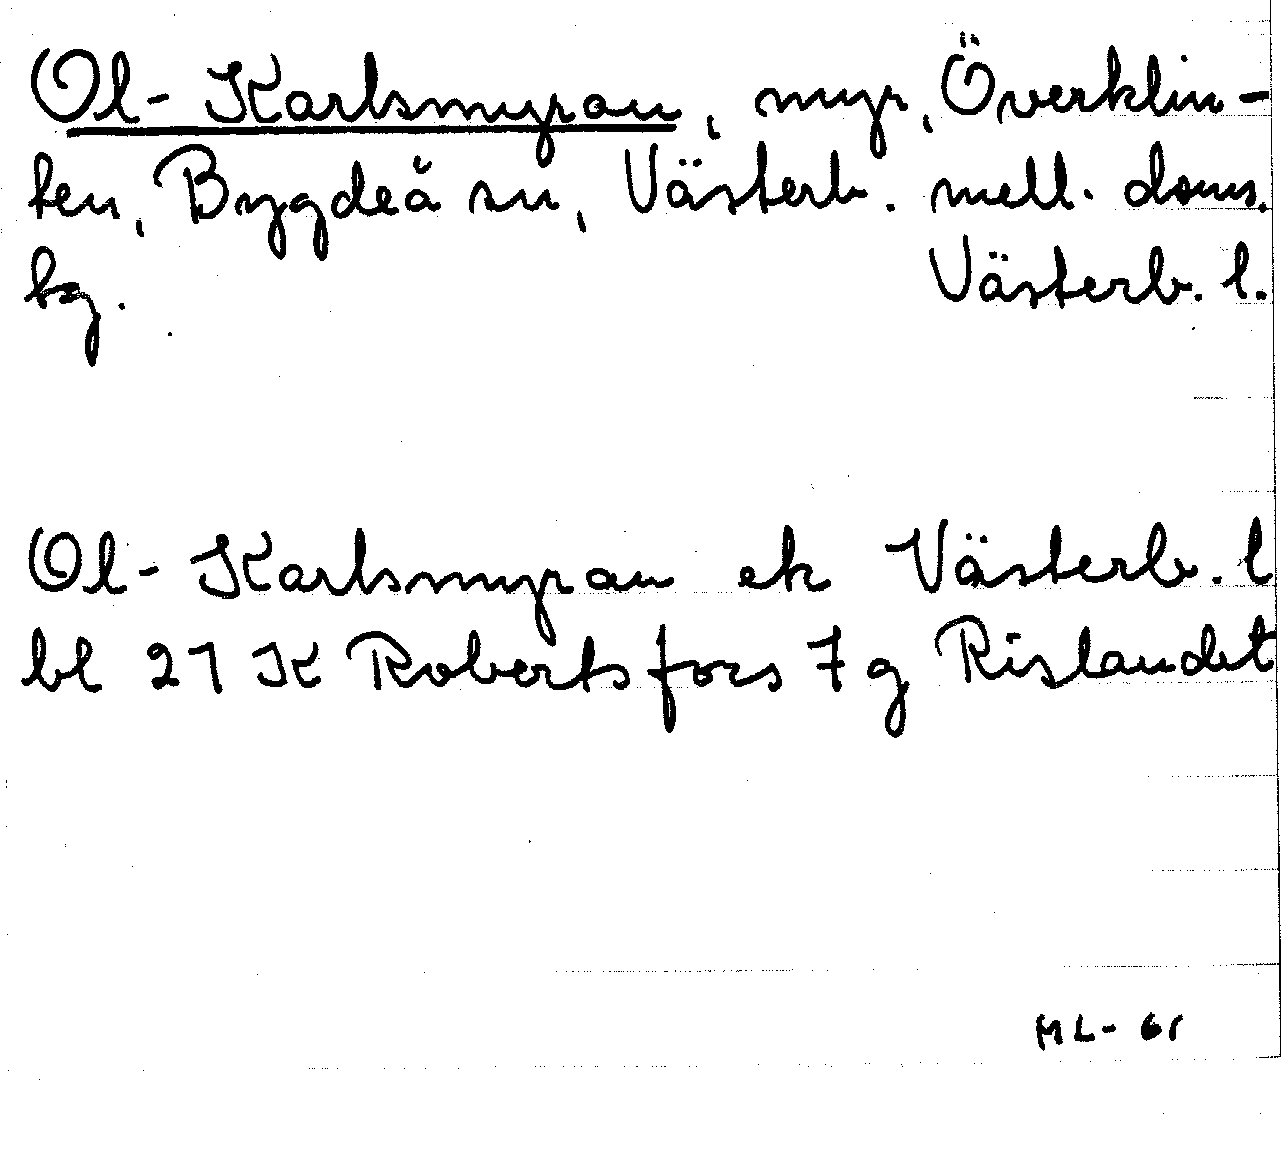 Ol-Karlsmyran, myr, Överklin-
ten, Bygdeå sn, Västerb. mell. doms.
bg. Västerb. l.
Ol-Karlsmyran ek Västerb. l
bl 21 K Robertsfors 7 g Rislandet
ML-61